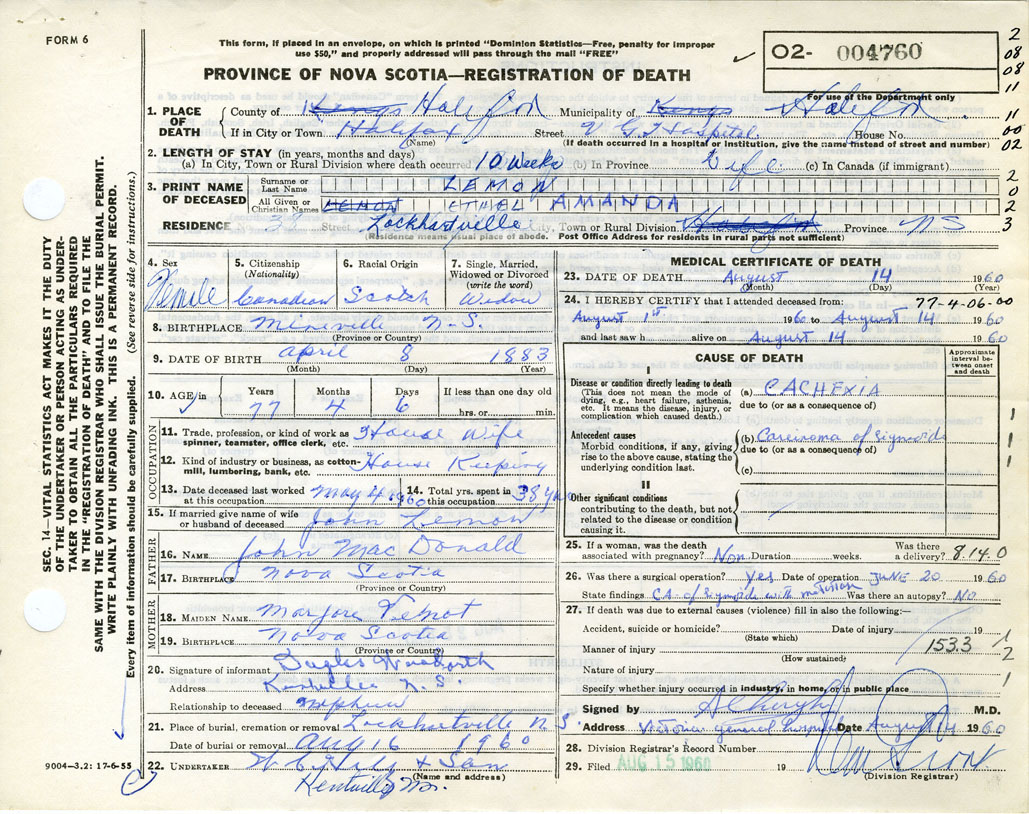 FORM 6
This form, if placed in an envelope, on which is printed "Dominion Statistics—Free, penalty for improper
use $50," and properly addressed will pass through the mail "FREE"
PROVINCE OF NOVA SCOTIA—REGISTRATION OF DEATH
O2- 004760
For use of the Department only
2
08
08
11
11
00
02
2
0
2
3
SEC. 14—VITAL STATISTICS ACT MAKES IT THE DUTY
OF THE UNDERTAKER OR PERSON ACTING AS UNDER-
TAKER TO OBTAIN ALL THE PARTICULARS REQUIRED
IN THE "REGISTRATION OF DEATH" AND TO FILE THE
SAME WITH THE DIVISION REGISTRAR WHO SHALL ISSUE THE BURIAL PERMIT.
WRITE PLAINLY WITH UNFADING INK. THIS IS A PERMANENT RECORD.
Every item of information should be carefully supplied. (See reverse side for instructions.)
1. PLACE OF DEATH County of Kings Halifax Municipality of Kings Halifax
If in City or Town Halifax Street V G Hospital House No.
(Name) (If death occurred in a hospital or institution, give the name instead of street and number)
2. LENGTH OF STAY (in years, months and days)
(a) In City, Town or Rural Division where death occurred 10 Weeks (b) In Province Life (c) In Canada (if immigrant)
3. PRINT NAME OF DECEASED Surname or Last Name LEMON
All Given or Christian Names LEMON ETHEL AMANDA
RESIDENCE Street Lockhartville City, Town or Rural Division Province N S
(Residence means usual place of abode. Post Office Address for residents in rural parts not sufficient)
4. Sex Female
5. Citizenship (Nationality) Canadian
6. Racial Origin Scotch
7. Single, Married, Widowed or Divorced (write the word) Widow
8. BIRTHPLACE Mineville N-S.
(Province or Country)
9. DATE OF BIRTH April 8 1883
(Month) (Day) (Year)
10. AGE in Years 77 Months 4 Days 6 If less than one day old hrs. or min.
OCCUPATION
11. Trade, profession, or kind of work as spinner, teamster, office clerk, etc. House Wife
12. Kind of industry or business, as cotton-mill, lumbering, bank, etc. House Keeping
13. Date deceased last worked at this occupation May 4 1960 14. Total yrs. spent in this occupation 38 years
15. If married give name of wife or husband of deceased John Lemon
FATHER
16. NAME John Mac Donald
17. BIRTHPLACE Nova Scotia
(Province or Country)
MOTHER
18. MAIDEN NAME Marjore
19. BIRTHPLACE Nova Scotia
(Province or Country)
20. Signature of informant
Address N. S.
Relationship to deceased nephew
21. Place of burial, cremation or removal Lockhartville N S.
Date of burial or removal Aug 16 1960
22. UNDERTAKER & Son
(Name and address)
Kentville N.S.
9004—3.2: 17-6-55
MEDICAL CERTIFICATE OF DEATH
23. DATE OF DEATH August 14 1960
(Month) (Day) (Year)
24. I HEREBY CERTIFY that I attended deceased from: 77-4-06-00
August 1st 1960 to August 14 1960
and last saw h alive on August 14 1960
CAUSE OF DEATH
Approximate interval between onset and death
I
Disease or condition directly leading to death
(This does not mean the mode of dying, e.g., heart failure, asthenia, etc. It means the disease, injury, or complication which caused death.)
(a) CACHEXIA
due to (or as a consequence of)
Antecedent causes
Morbid conditions, if any, giving rise to the above cause, stating the underlying condition last.
(b) Carcinoma of Sigmoid
due to (or as a consequence of)
(c)
II
Other significant conditions
contributing to the death, but not related to the disease or condition causing it.
1
1
1
25. If a woman, was the death associated with pregnancy? Non Duration weeks. Was there a delivery? 8.14.0
26. Was there a surgical operation? Yes Date of operation JUNE 20 1960
State findings CA. of Sigmoid with Was there an autopsy? NO
27. If death was due to external causes (violence) fill in also the following:—
Accident, suicide or homicide? Date of injury 19
(State which)
Manner of injury 153.3
(How sustained)
Nature of injury
Specify whether injury occurred in industry, in home, or in public place
1
2
1
Signed by M.D.
Address Victoria general hospital Date August 14 1960
28. Division Registrar's Record Number
29. Filed AUG 15 1960 19
(Division Registrar)